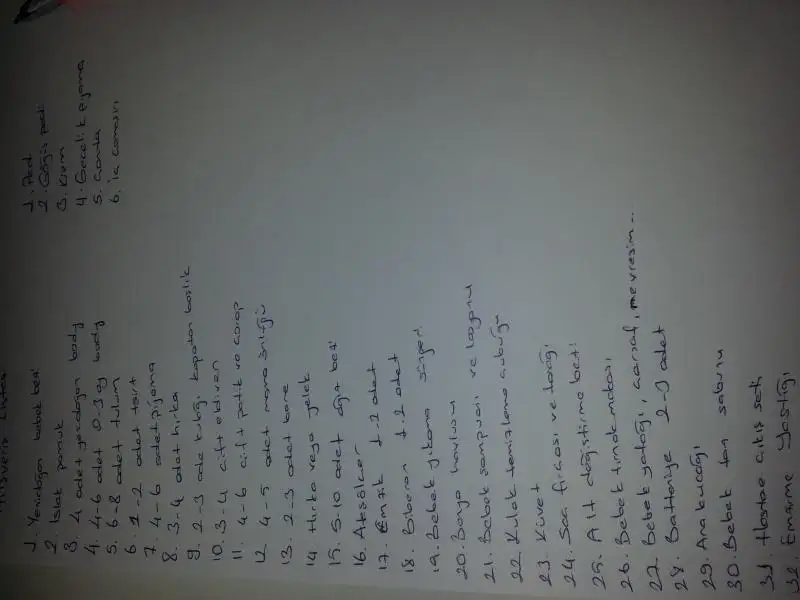 Alışveriş Listesi
1. Yenidoğan bebek bezi
2. Islak pamuk
3. 4 adet yenidoğan body
4. 4-6 adet 0-3 ay body
5. 6-8 adet tulum
6. 1-2 adet
7. 4-6 adet pijama
8. 3-4 adet hırka
9. 2-3 adet kulağı kapatan başlık
10. 3-4 çift eldiven
11. 4-6 çift patik ve çorap
12. 4-5 adet mama önlüğü
13. 2-3 adet bone
14. Hırka veya yelek
15. 5-10 adet ağız bezi
16.
17. Emzik 1-2 adet
18. Biberon 1-2 adet
19. Bebek yıkama süngeri
20. Banyo havlusu
21. Bebek şampuanı ve losyonu
22. Kulak temizleme çubuğu
23. Küvet
24. Saç fırçası ve tarağı
25. Alt değiştirme bezi
26. Bebek tırnak makası
27. Bebek yatağı, çarşaf, nevresim...
28. Battaniye 2-3 adet
29. Ana kucağı
30. Bebek ten sabunu
31. Hastane çıkış seti
32. Emzirme Yastığı
1. Ped
2. Göğüs pedi
3. Krem
4. Gecelik pijama
5. Çanta
6. İç çamaşırı